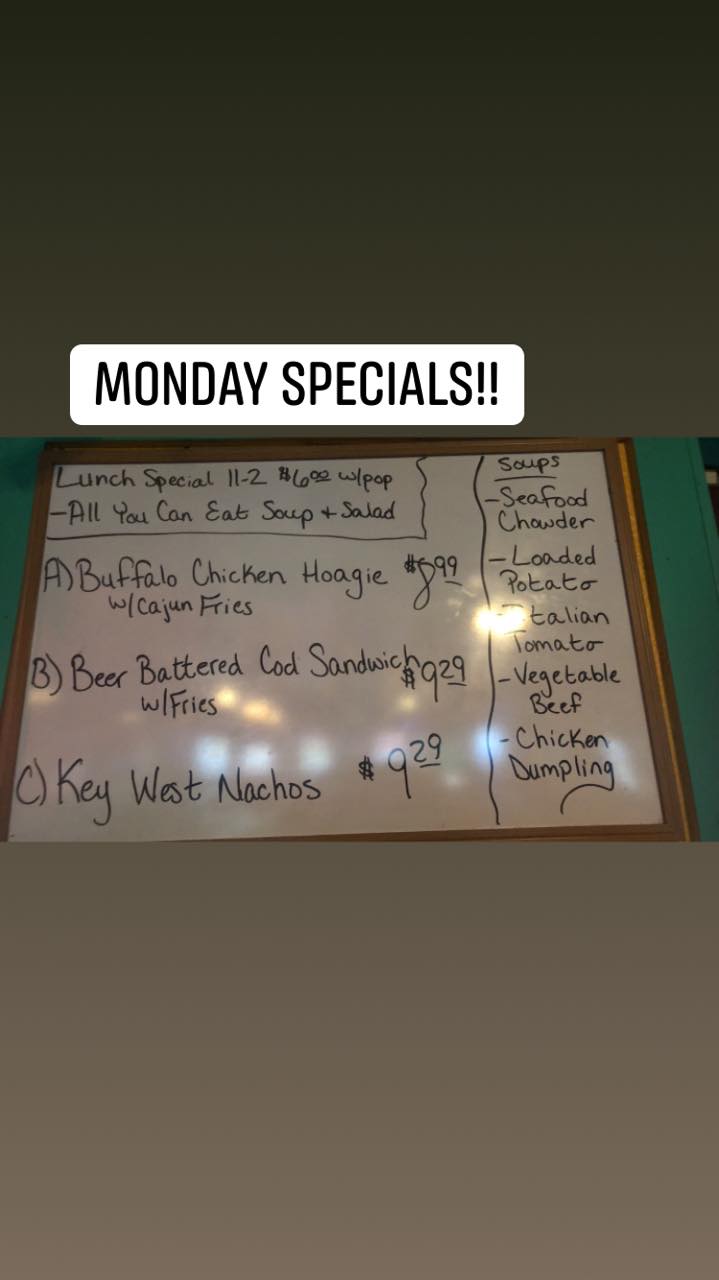 MONDAY SPECIALS!!
Lunch Special 11-2 $6.00 w/pop
-All You Can Eat Soup + Salad
A) Buffalo Chicken Hoagie $8.99
w/Cajun Fries
B) Beer Battered Cod Sandwich $9.29
w/Fries
C) Key West Nachos $9.29
Soups
-Seafood
Chowder
-Loaded
Potato
-Italian
Tomato
-Vegetable
Beef
-Chicken
Dumpling